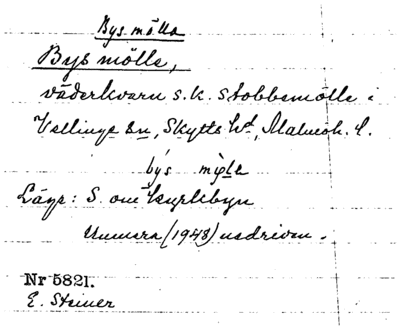 Bys mölla
Bys mölle,
väderkvarn s.k. stobbemölle i
Vellinge sn, Skytts hd, Malmöh. l.
býs mỳle
Läge: S. om kyrkebyn
Numera (1948) nedriven.
Nr 5821.
E. Steiner